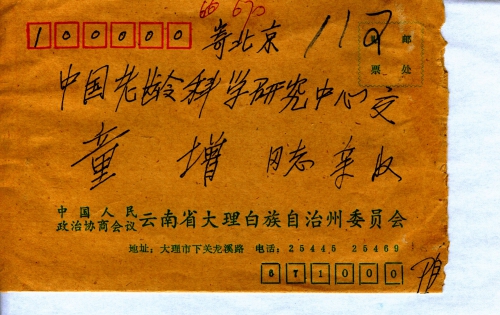 66 670
100000 寄北京 117
邮
票处
中国老龄科学研究中心交
童增 同志亲收
中国人民
政治协商会议 云南省大理白族自治州委员会
地址:大理市下关龙溪路 电话:25445 25469
671000